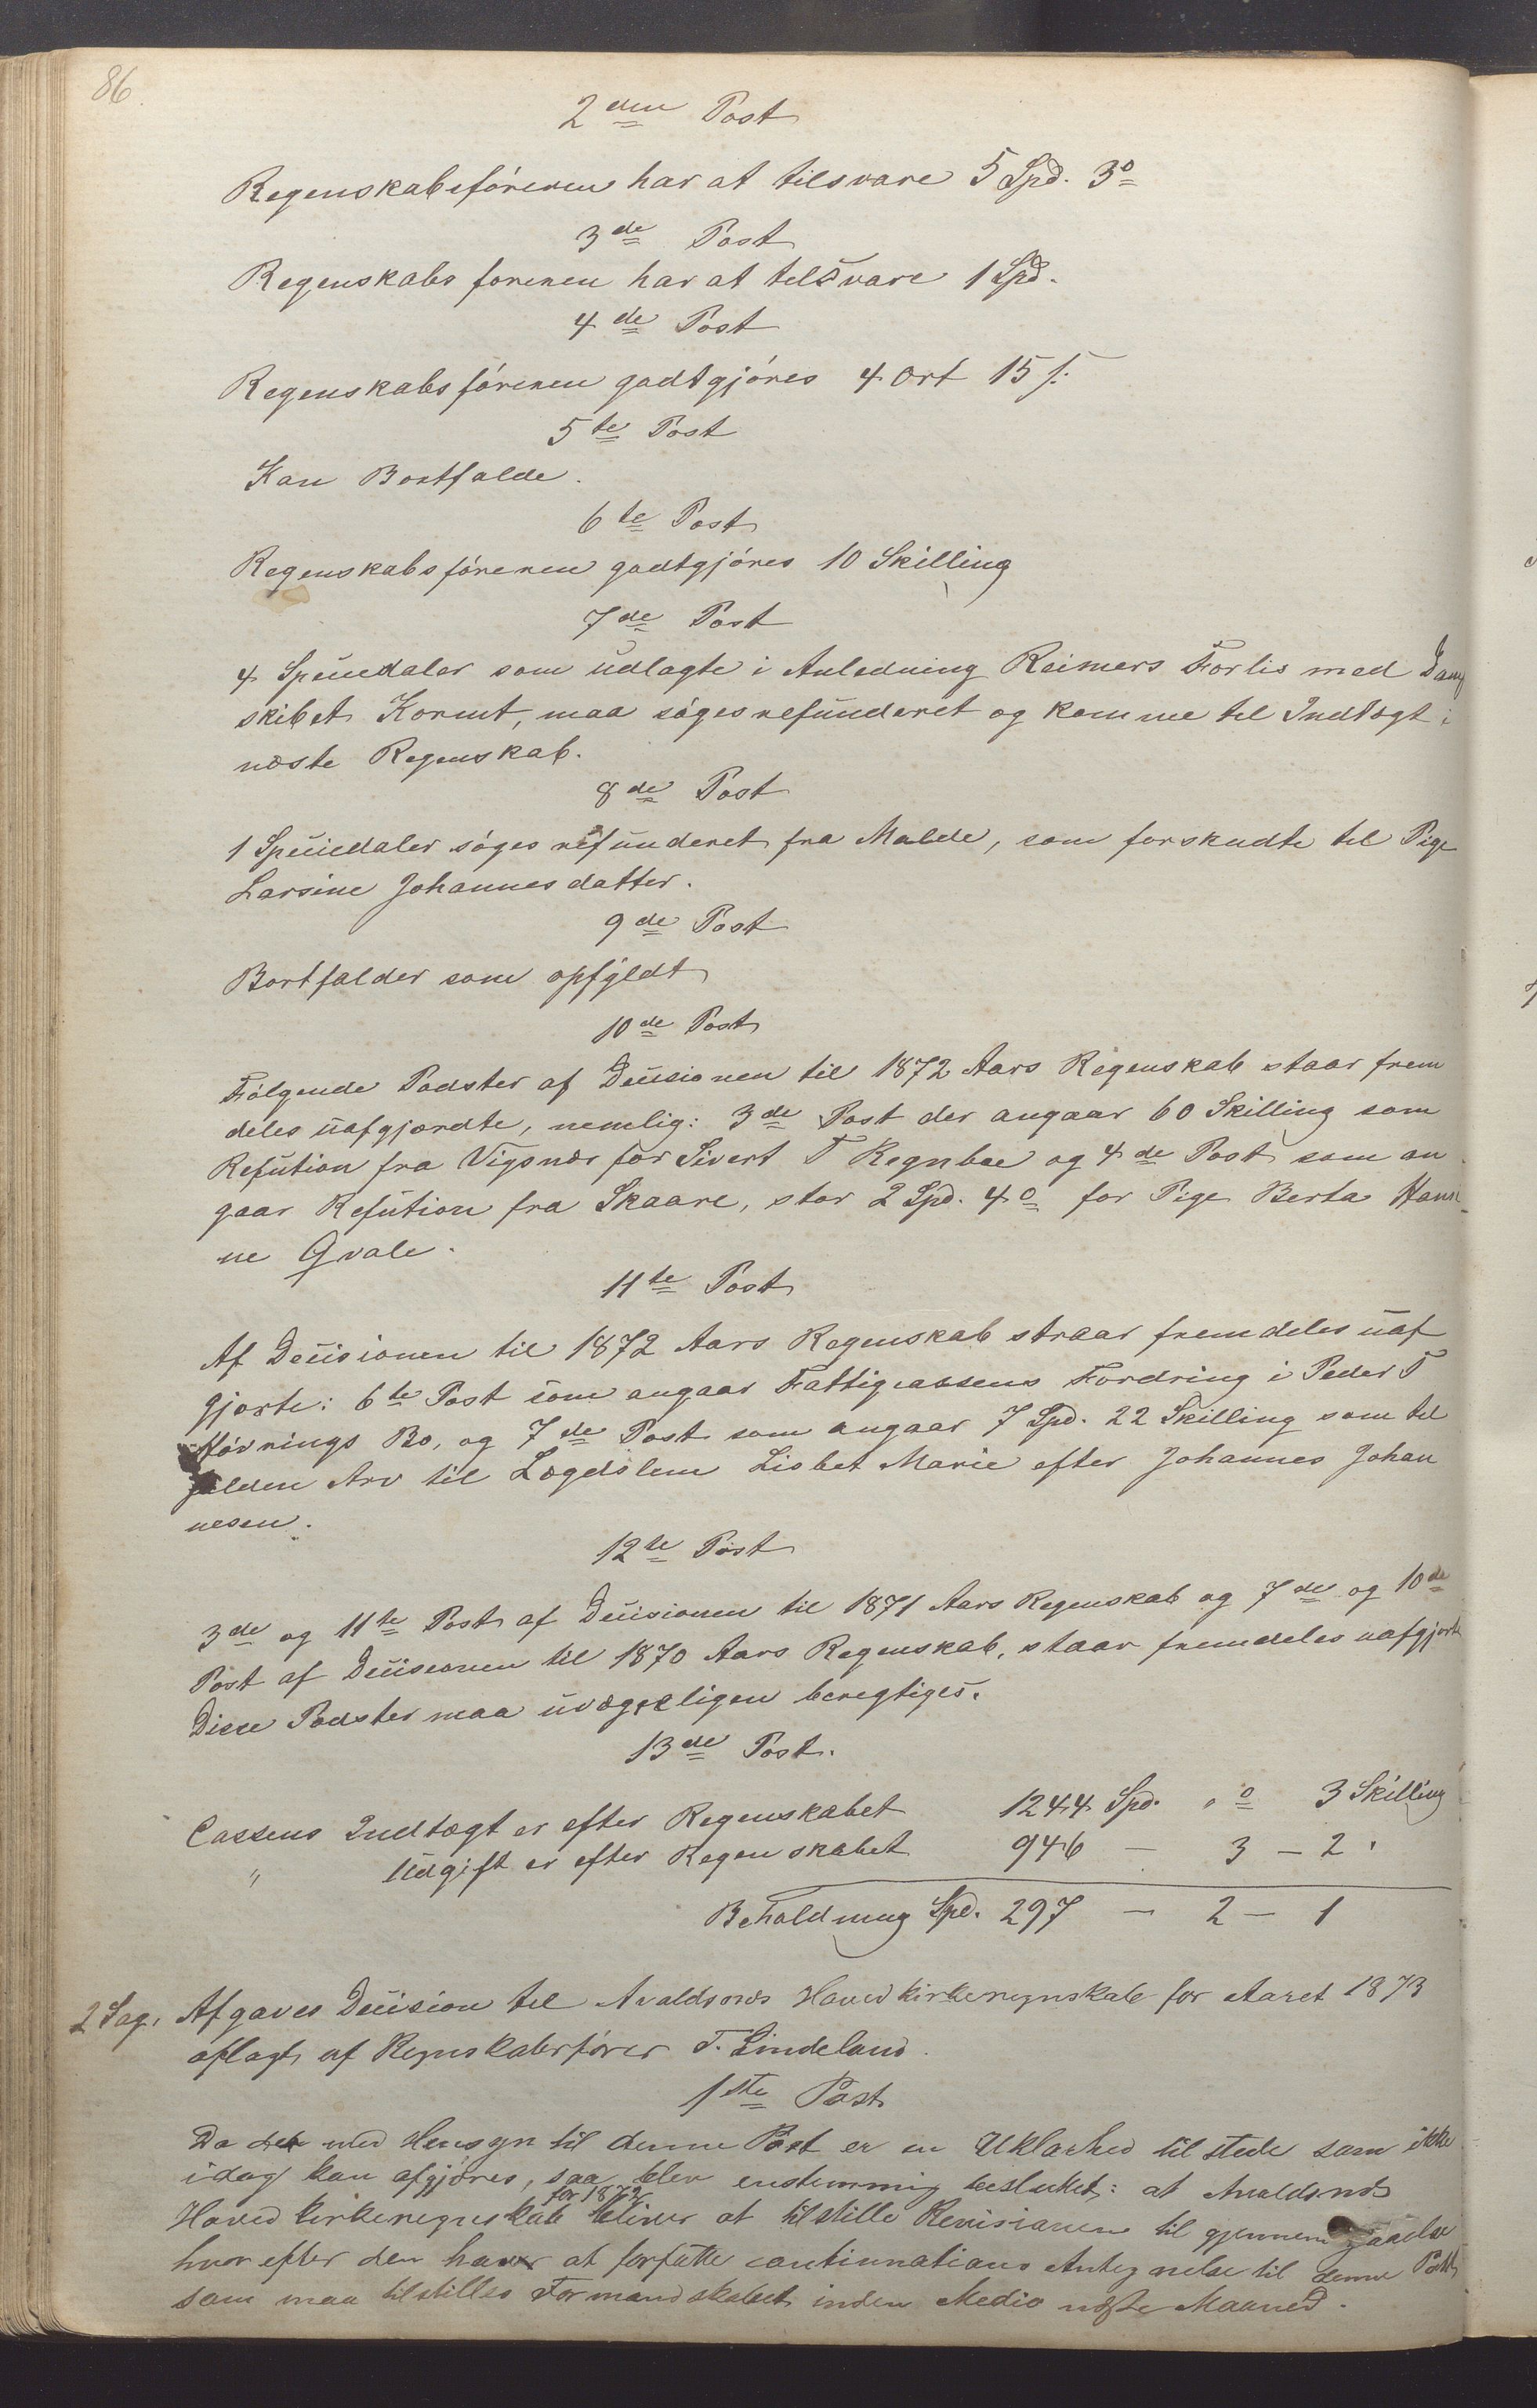 86.
2den Post
Regenskabsføreren har at tilsvare 5 Spd. 3o
3de Post
Regenskabsføreren har at tilsvare 1 Spd.
4de Post
Regenskabsføreren godtgjøres 4 Ort 15 s.
5te Post
Kan Bortfalde.
6te Post
Regenskabsføreren godtgjøres 10 Skilling
7de Post
4 Speciedaler som udlagte i Anledning Reimers Forlis med Damp
skibet Kormt, maa søges refunderet og komme til Indtægt i
næste Regenskab.
8de Post
1 Speciedaler søges refunderet fra Malde, som forskudte til Pige
Larsine Johannesdatter.
9de Post
Bortfalder som opfyldt
10de Post
Følgende Podster af Decisionen til 1872 Aars Regenskab staar frem
deles uafgjordte, nemlig: 3de Post der angaar 60 Skilling som
Refution fra Vigsnæs for Sivert T Regnbae og 4de Post som an
gaar Refution fra Skaare, stor 2 Spd. 4o for Pige Berta Hansi
ne Qvale.
11te Post
Af Decisionen til 1872 Aars Regenskab straar fremdeles uaf
gjorte: 6te Post som angaar Fattigcassens Fordring i Peder T
Høvrings Bo, og 7de Post som angaar 7 Spd. 22 Skilling som til
falden Arv til Lægdslem Lisbet Marie efter Johannes Johan
nesen.
12te Post
3de og 11te Post af Decisionen til 1871 Aars Regenskab og 7de og 10de
Post af Decisionen til 1870 Aars Regenskab, staar fremdeles uafgjort
Disse Podster maa uvægerligen beregtiges.
13de Post.
Cassens Indtægt er efter Regenskabet 1244 Spd. „ o 3 Skilling
" Udgift er efter Regenskabet 946 — 3 — 2 "
Beholdning Spd. 297 — 2 — 1
2 Sag. Afgaves Decision til Avaldsnæs Hovedkirkeregnskab for Aaret 1873
aflagt af Regnskabsfører T. Lindeland.
1ste Post
Da det med Hensyn til denne Post er en Uklarhed tilstede som ikke
idag kan afgjøres, saa blev enstemmig besluttet: at Avaldsnæs
for 1872
Hovedkirkeregnskab bliver at tilstille Revisionen til gjennemgaaelse
hvorefter den haver at forfatte continuations Antegnelse til denne Post
som maa tilstilles Formandskabet inden Medio næste Maaned.